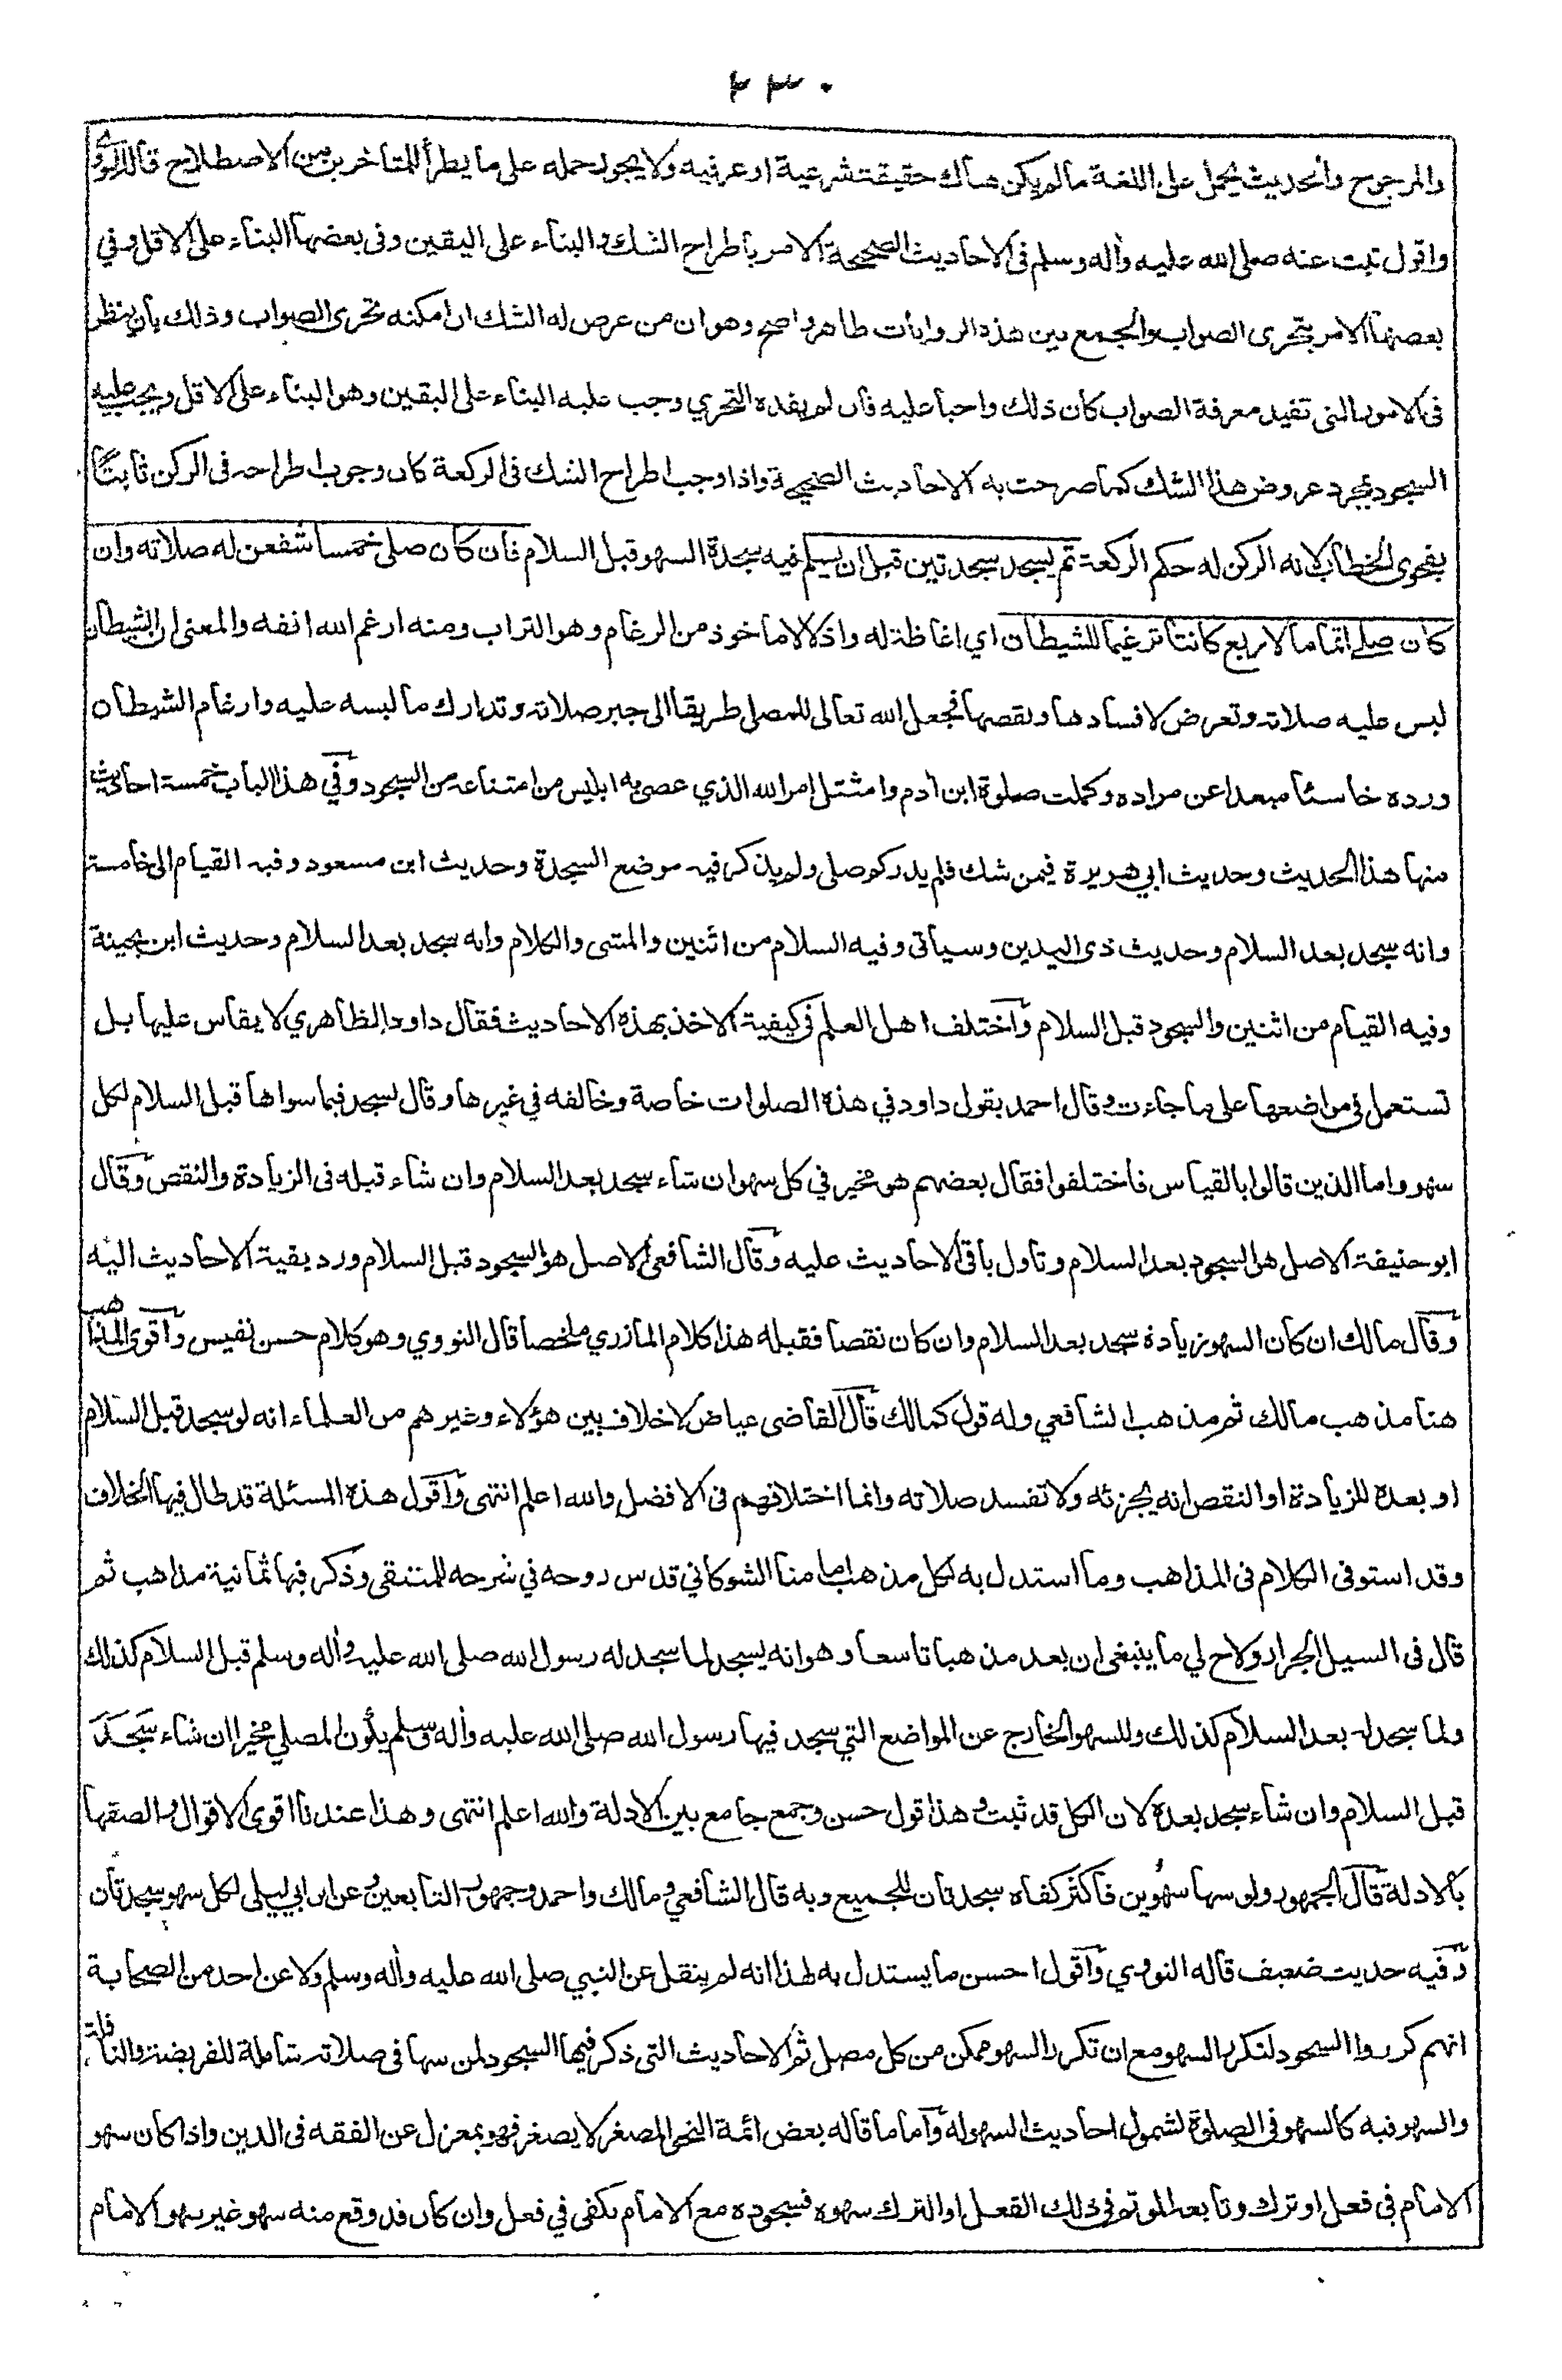 ٢٣٠
والمرجوح والحديث يحمل على اللغة مالم يكن هناك حقيقة شرعية او عرفيه ولا يجوز حمله على ما يطرأ للمتاخرين من الاصطلاح قاله النووى
واقول ثبت عنه صلى الله عليه وأله وسلم فى الاحاديث الصحيحة الامر بأطراح الشك والبناء على اليقين وفى بعضها البناء على الاقل وفي
بعضها الامر بتحرى الصواب والجمع بين هذه الروايات ظاهر واضح وهو ان من عرض له الشك ان امكنه تحرى الصواب وذلك بأن ينظر
فى الامور التى تفيد معرفة الصواب كان ذلك واجبا عليه فأن لم يفده التحري وجب عليه البناء على اليقين وهو البناء على الاقل ويجب عليه
السجود بمجرد عروض هذا الشك كما صرحت به الاحاديث الصحيحة واذا وجب اطراح الشك فى الركعة كان وجوب اطراحه فى الركن ثابتًا
بفحوى الخطاب لانه الركن له حكم الركعة ثم يسجد سجدتين قبل ان يسلم فيه سجدة السهو قبل السلام فأن كان صلى خمسا شفعن له صلاته وان
كان صلے اتماما لاربع كانتا ترغيما للشيطان اي اغاظة له واذلالا ماخوذ من الرغام وهو التراب ومنه ارغم الله انفه والمعنى ان الشيطان
لبس عليه صلاته وتعرض لافسادها ونقصها فجعل الله تعالى للمصلى طريقا الى جبر صلاته وتدارك ما لبسه عليه وارغام الشيطان
ورده خاسئا مبعدا عن مراده وكملت صلوة ابن أدم وامتثل امر الله الذي عصى به ابليس من امتناعه من السجود وفي هذا الباب خمسة احاديث
منها هذا الحديث وحديث ابي هريرة فيمن شك فلم يدر كم صلى ولم يذكر فيه موضع السجدة وحديث ابن مسعود وفيه القيام الى خامسة
وانه سجد بعد السلام وحديث ذى اليدين وسيأتى وفيه السلام من اثنين والمشى والكلام وانه سجد بعد السلام وحديث ابن بحينة
وفيه القيام من اثنين والسجود قبل السلام واختلف اهل العلم في كيفية الاخذ بهذه الاحاديث فقال داود الظاهري لا يقاس عليها بل
تستعمل في مواضعها على ما جاءت وقال احمد بقول داود في هذه الصلوات خاصة وخالفه في غيرها وقال يسجد فيما سواها قبل السلام لكل
سهو واما الذين قالوا بالقياس فأختلفوا فقال بعضهم هو مخير في كل سهو ان شاء سجد بعد السلام وان شاء قبله فى الزيادة والنقص وقال
ابو حنيفة الاصل هو السجود بعد السلام وتأول بأقى الاحاديث عليه وقال الشافعى الاصل هو السجود قبل السلام ورد بقية الاحاديث اليه
وقال مالك ان كان السهو زيادة سجد بعد السلام وان كان نقصا فقبله هذا كلام المازري ملخصا قال النووي وهو كلام حسن نفيس واقوى المذاهب
هنا مذهب مالك ثم مذهب الشافعي وله قول كمالك قال القاضى عياض لا خلاف بين هؤلاء وغيرهم من العلماء انه لو سجد قبل السلام
او بعده للزيادة او النقص انه يجزئه ولا تفسد صلاته وانما اختلافهم فى الافضل والله اعلم انتهى واقول هذه المسئلة قد طال فيها الخلاف
وقد استوفى الكلام فى المذاهب وما استدل به لكل مذهب امامنا الشوكاني قدس روحه في شرحه للمنتقى وذكر فيها ثمانية مذاهب ثم
قال فى السيل الجرار ولاح لي ما ينبغى ان يعد مذهبا تاسعا وهو انه يسجد لما سجد له رسول الله صلى الله عليه وأله وسلم قبل السلام كذلك
ولما سجد له بعد السلام كذلك وللسهو الخارج عن المواضع التي سجد فيها رسول الله صلى الله عليه وأله وسلم يكون المصلي مخيرا ان شاء سَجَدَ
قبل السلام وان شاء سجد بعده لان الكل قد ثبت وهذا قول حسن وجمع جامع بين الادلة والله اعلم انتهى وهذا عندنا اقوى الاقوال والصقها
بألادلة قال الجمهور ولو سها سهوين فأكثر كفاه سجدتان للجميع وبه قال الشافعي ومالك واحمد وجمهور التابعين وعن ابن ابي ليلى لكل سهو سجدتان
وفيه حديث ضعيف قاله النووي واقول احسن ما يستدل به لهذا انه لم ينقل عن النبي صلى الله عليه وأله وسلم ولا عن احد من الصحابة
انهم كرروا السجود لتكرر السهو مع ان تكرر السهو ممكن من كل مصل ثم الاحاديث التى ذكر فيها السجود لمن سها فى صلاته شاملة للفريضة والنافلة
والسهو فيه كالسهو فى الصلوة لشمول احاديث السهو له وأما ما قاله بعض ائمة النحو المصغر لا يصغر فهو بمعزل عن الفقه فى الدين واذا كان سهو
الامام في فعل او ترك وتابعه الموتم فى ذلك الفعل او الترك سهوه فسجوده مع الامام يكفى في فعل وان كان قد وقع منه سهو غير سهو الامام